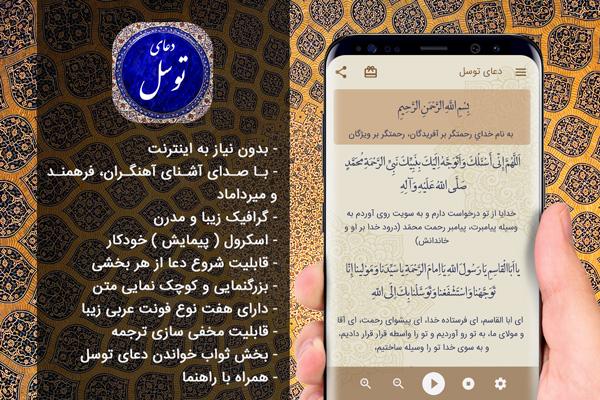 دعای
توسل
- بدون نیاز به اینترنت
- بـا صـدای آشـنای آهنگـران، فرهمنـد
و میرداماد
- گرافیک زیبا و مدرن
- اسکرول ( پیمایش ) خودکار
- قابلیت شروع دعا از هر بخشی
- بزرگنمایی و کوچک نمایی متن
- دارای هفت نوع فونت عربی زیبا
- قابلیت مخفی سازی ترجمه
- بخش ثواب خواندن دعای توسل
- همراه با راهنما
دعای توسل
بِسْمِ اللَّهِ الرَّحْمَنِ الرَّحِيمِ
به نام خدای رحمتگر بر آفریدگان، رحمتگر بر ویژگان
اَللّهُمَّ اِنّى اَسْئَلُكَ وَاَتَوَجَّهُ اِلَيْكَ بِنَبِيِّكَ نَبِىِّ الرَّحْمَةِ مُحَمَّدٍ
صَلَّى اللهُ عَلَيْهِ وَآلِهِ
خدایا از تو درخواست دارم و به سویت روی آوردم به
وسیله پیامبرت، پیامبر رحمت محمّد (درود خدا بر او و
خاندانش)
يا اَبَا الْقاسِمِ يا رَسُولَ اللهِ يا اِمامَ الرَّحْمَةِ يا سَيِّدَنا وَمَوْلينا اِنّا
تَوَجَّهْنا وَاسْتَشْفَعْنا وَتَوَسَّلْنا بِكَ اِلَى اللهِ
ای ابا القاسم، ای فرستاده خدا، ای پیشوای رحمت، ای آقا
و مولای ما، به تو رو آوردیم و تو را واسطه قرار قرار دادیم،
و به سوی خدا تو را وسیله ساختیم،